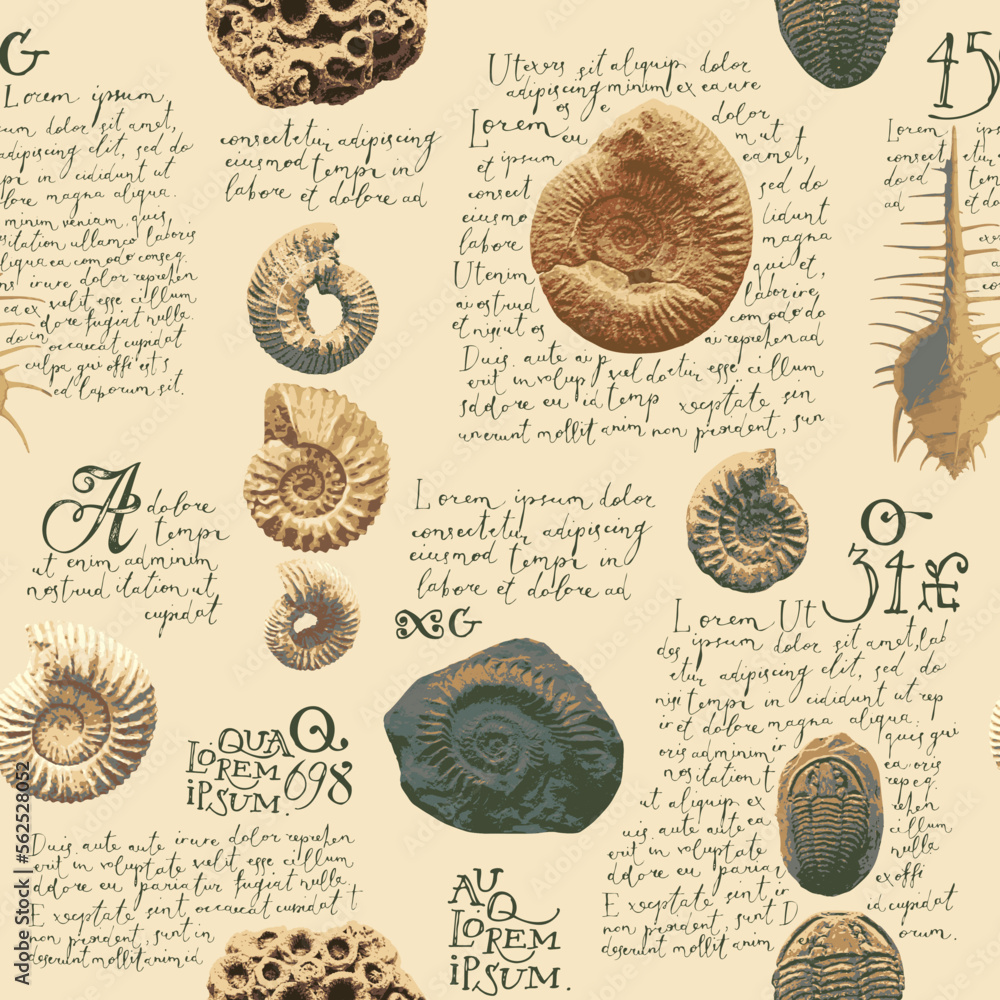 G
Lorem ipsum,
cum dolor sit amet,
adipiscing elit, sed do
in cididunt ut
dolore magna aliqua.
minim veniam, quis
sitation ullamco laboris
aliqua ea commodo conseq.
irure dolor reprehen
ea ex velit esse cillum
dore fugiat nulla.
do in occaecat cupidat
culpa qui offi est s
ed laborum sit.
consectetur adipiscing
eiusmod tempi in
labore et dolore ad
Utexers sit aliquip dolor
adipiscing minim ex ea ure
os e
Lorem eu
et ipsum
consect
eiusmo
labore
Utenim
ai ostrud
et nisi ut os
dolor
m ut
eamet,
sed do
lidunt
magna
qui et,
laborire
comodo do
au reprehen ad
Duis aute au p vel dortur esse cillum
erit in volup
sd dore eu id temp xceptate sin
unerunt mollit anim non proident, sun
450
Lorem
consect
do ed
ad
A dolore
tempi
ut enim adminim
nostrud itation ut
cupidat
Lorem ipsum dolor
consectetur adipiscing
eiusmod tempi in
labore et dolore ad
G
O
34
Lorem Ut
dos ipsum dolor sit amet, lab
etur adipiscing elit, sed do
nisi tempi in cididunt ut rep
ir et dolore magna aliqua.
oris adminim ir
quis gui
nositation t
ea oris
ut aliquip ex
rep eg
uis aute aute ea
rehen
erit in voluptate
cillum
ddore eu pariar
nulla
E xceptate sint ir
ex offi
non proident, sunt D
id cupidat
deserunt mollit anim
orum.
QUA Q
LOREM 698
IPSUM.
Duis aute aute irure dolor reprehen
erit in voluptate velit esse cillum
ddore eu pariatur fugiat nulla
E xceptate sint occaecat cupidat t
non proident, sunt in
deserunt mollit anim id
AU
Q
LOREM
IPSUM.
Adobe Stock | #562528052